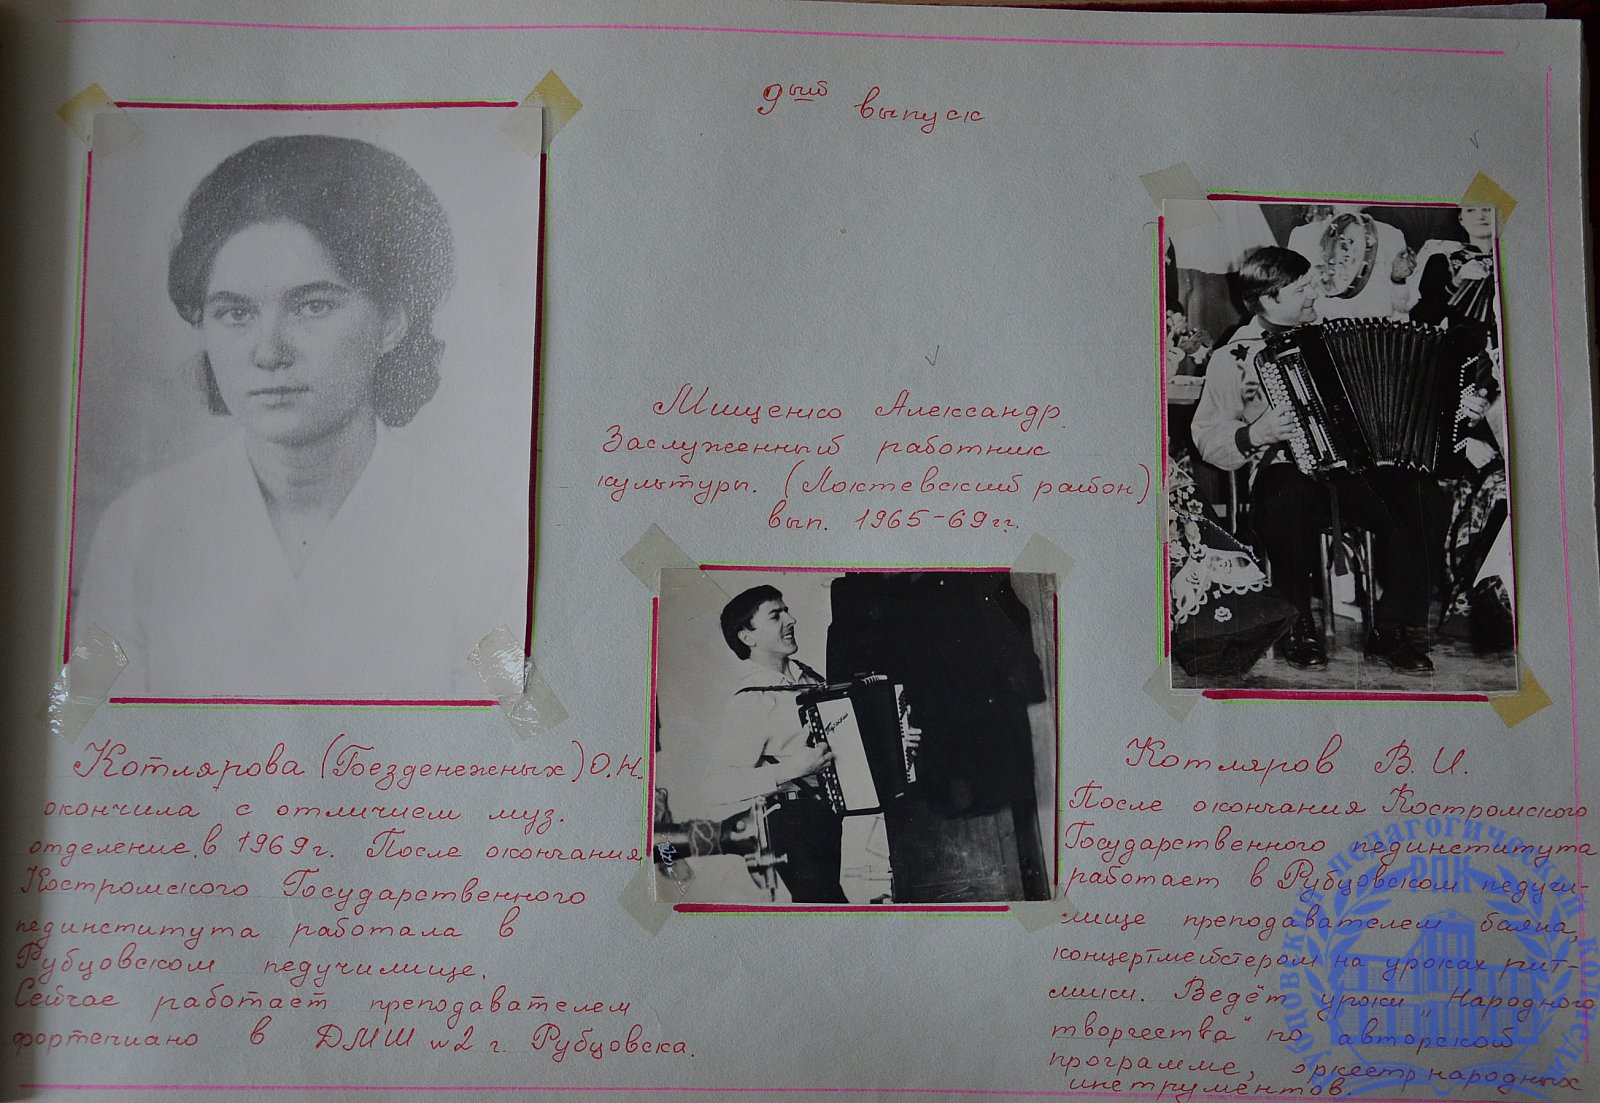 9ый выпуск
Мищенко Александр.
Заслуженный работник
культуры. (Локтевский район)
вып. 1965-69гг.
Котлярова (Безденежных) О.Н.
окончила с отличием муз.
отделение в 1969г. После окончания
Костромского Государственного
пединститута работала в
Рубцовском педучилище.
Сейчас работает преподавателем
фортепиано в ДМШ №2 г. Рубцовска.
Котляров В.И.
После окончания Костромского
Государственного пединститута
работает в Рубцовском педучи-
лище преподавателем баяна,
концертмейстером на уроках рит-
мики. Ведёт уроки „Народного
творчества" по авторской
программе, оркестр народных
инструментов.
Рубцовский педагогический колледж
РПК